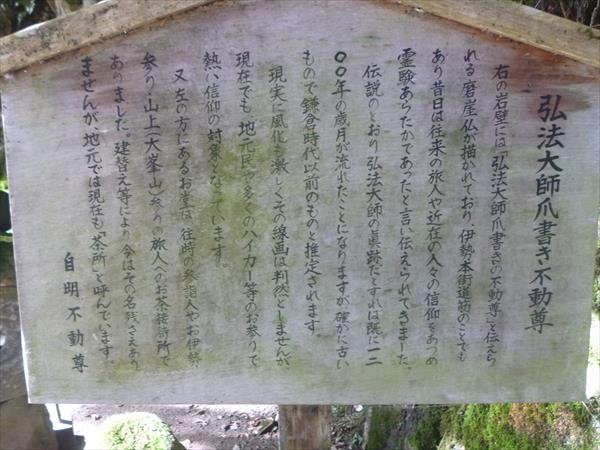 弘法大師爪書き不動尊
右の岩壁には「弘法大師爪書きの不動尊」と伝えら
れる磨崖仏が描かれており、伊勢本街道筋のことでも
あり昔日は往来の旅人や近在の人々の信仰をあつめ
霊験あらたかであったと言い伝えられてきました。
伝説のとおり弘法大師の眞跡だとすれば既に一二
〇〇年の歳月が流れたことになりますが、確かに古い
もので鎌倉時代以前のものと推定されます。
現実に風化が激しくその線画は判然としませんが
現在でも、地元民や多くのハイカー等のお参りで
熱い信仰の対象となっています。
又左の方にあるお堂は、往時の参詣人やお伊勢
参り・山上(大峯山)参りの旅人へのお茶接待所で
ありました。建替え等により今はその名残さえあり
ませんが、地元では現在も「茶所」と呼んでいます。
自明不動尊